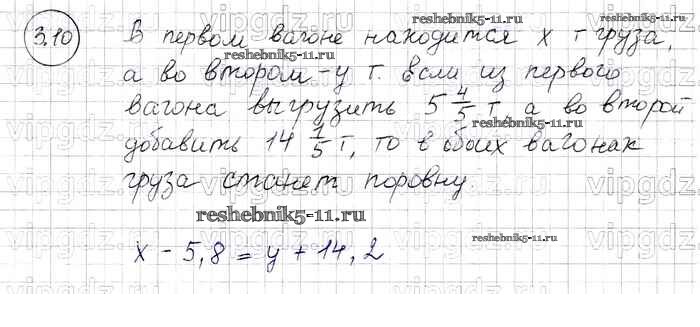 3.10 В первом вагоне находится х т груза,
а во втором - у т. если из первого
вагона выгрузить 5 4/5 т а во второй
добавить 14 1/5 т, то в обоих вагонах
груза станет поровну.
х - 5,8 = у + 14,2
reshebnik5-11.ru
reshebnik5-11.ru
reshebnik5-11.ru
reshebnik5-11.ru
reshebnik5-11.ru
reshebnik5-11.ru
vipgdz.ru